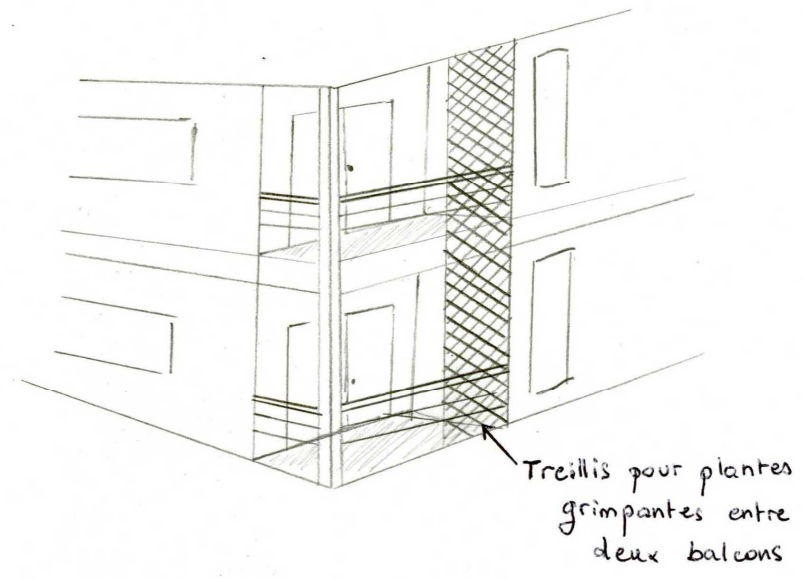 Treillis pour plantes
grimpantes entre
deux balcons